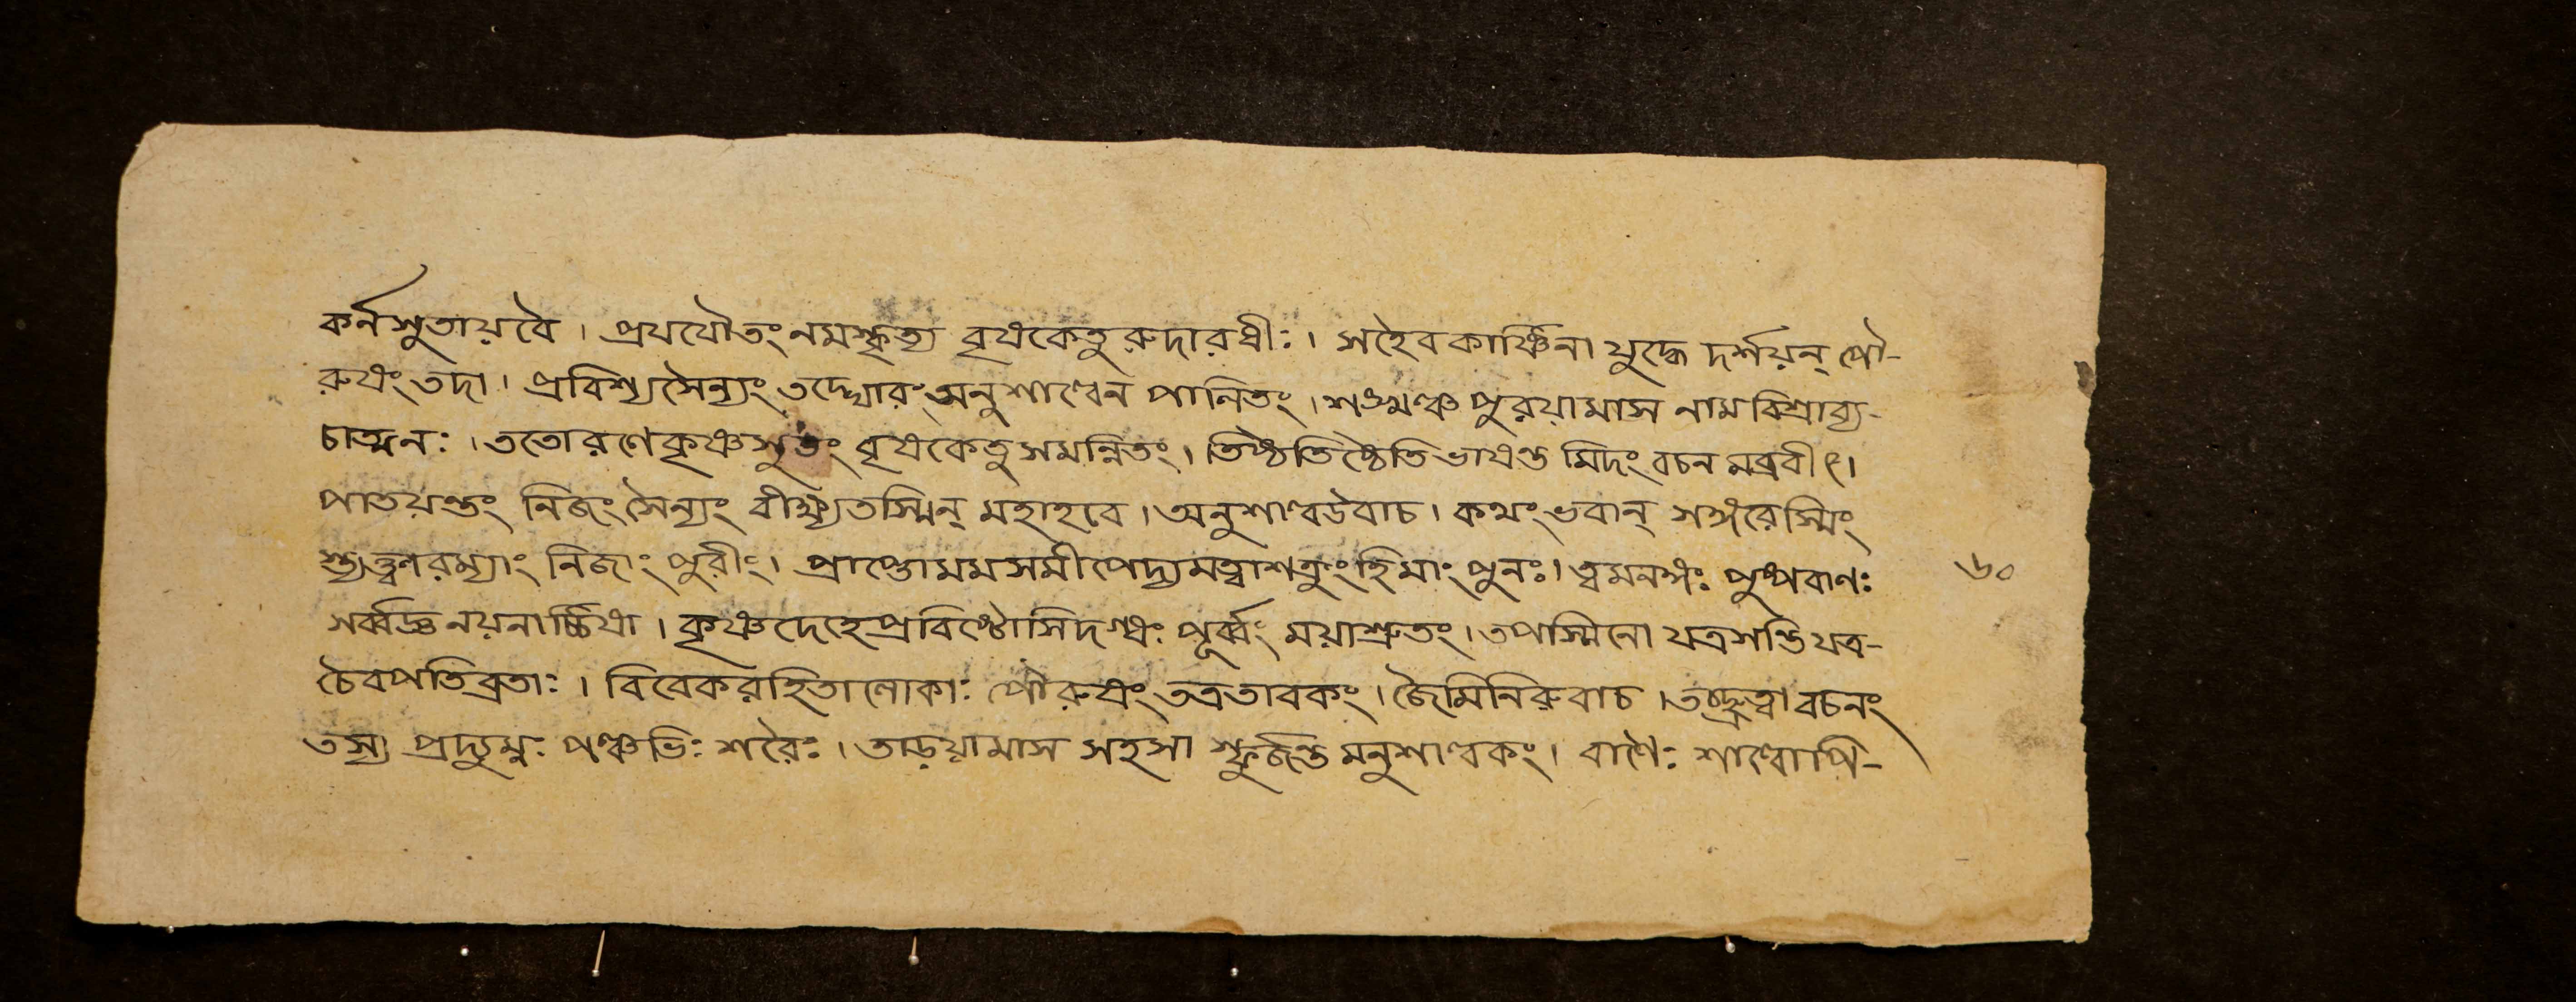 কর্নসুতায়বৈ। প্রযযৌতং নমস্কৃত্য বৃষকেতুরুদারধীঃ। সহৈবকার্ষ্ণিনা যুদ্ধে দর্শয়ন্ পৌ-
রুষং তদা। প্রবিশ্যসৈন্যং তদ্ঘোরং অনুশাল্বেন পালিতং। শঙ্খঞ্চ পুরয়ামাস নামবিশ্রাব্য-
চাত্মনঃ। ততোরণেকৃষ্ণসুতং বৃষকেতুসমন্বিতং। তিষ্ঠতিষ্ঠেতিভাষন্ত মিদং বচন মব্রবীৎ।
পাতয়ন্তং নিজং সৈন্যং বীক্ষ্যতস্মিন্ মহাহবে। অনুশাল্বউবাচ। কথং ভবান্ সঙ্গরেস্মিং
স্ত্যক্ত্বারম্যাং নিজাং পুরীং। প্রাপ্তোমমসমীপেদ্যমত্বাশত্রুং হিমাং পুনঃ। ত্বমনঙ্গঃ পুষ্পবাণঃ
সর্ব্বজ্ঞনয়নার্চ্চিষা। কৃষ্ণদেহেপ্রবিষ্টোসিদগ্ধঃ পূর্ব্বং ময়াশ্রুতং। তপস্বিনো যত্রসন্তিযত্র-
চৈবপতিব্রতাঃ। বিবেকরহিতালোকাঃ পৌরুষং তত্রতাবকং। জৈমিনিরুবাচ। তচ্ছ্রুত্বাবচনং
তস্য প্রদ্যুম্নঃ পঞ্চভিঃ শরৈঃ। তাড়য়ামাস সহসা স্ফুর্জন্ত মনুশাল্বকং। বাণৈঃ শাল্বোপি-
৬০